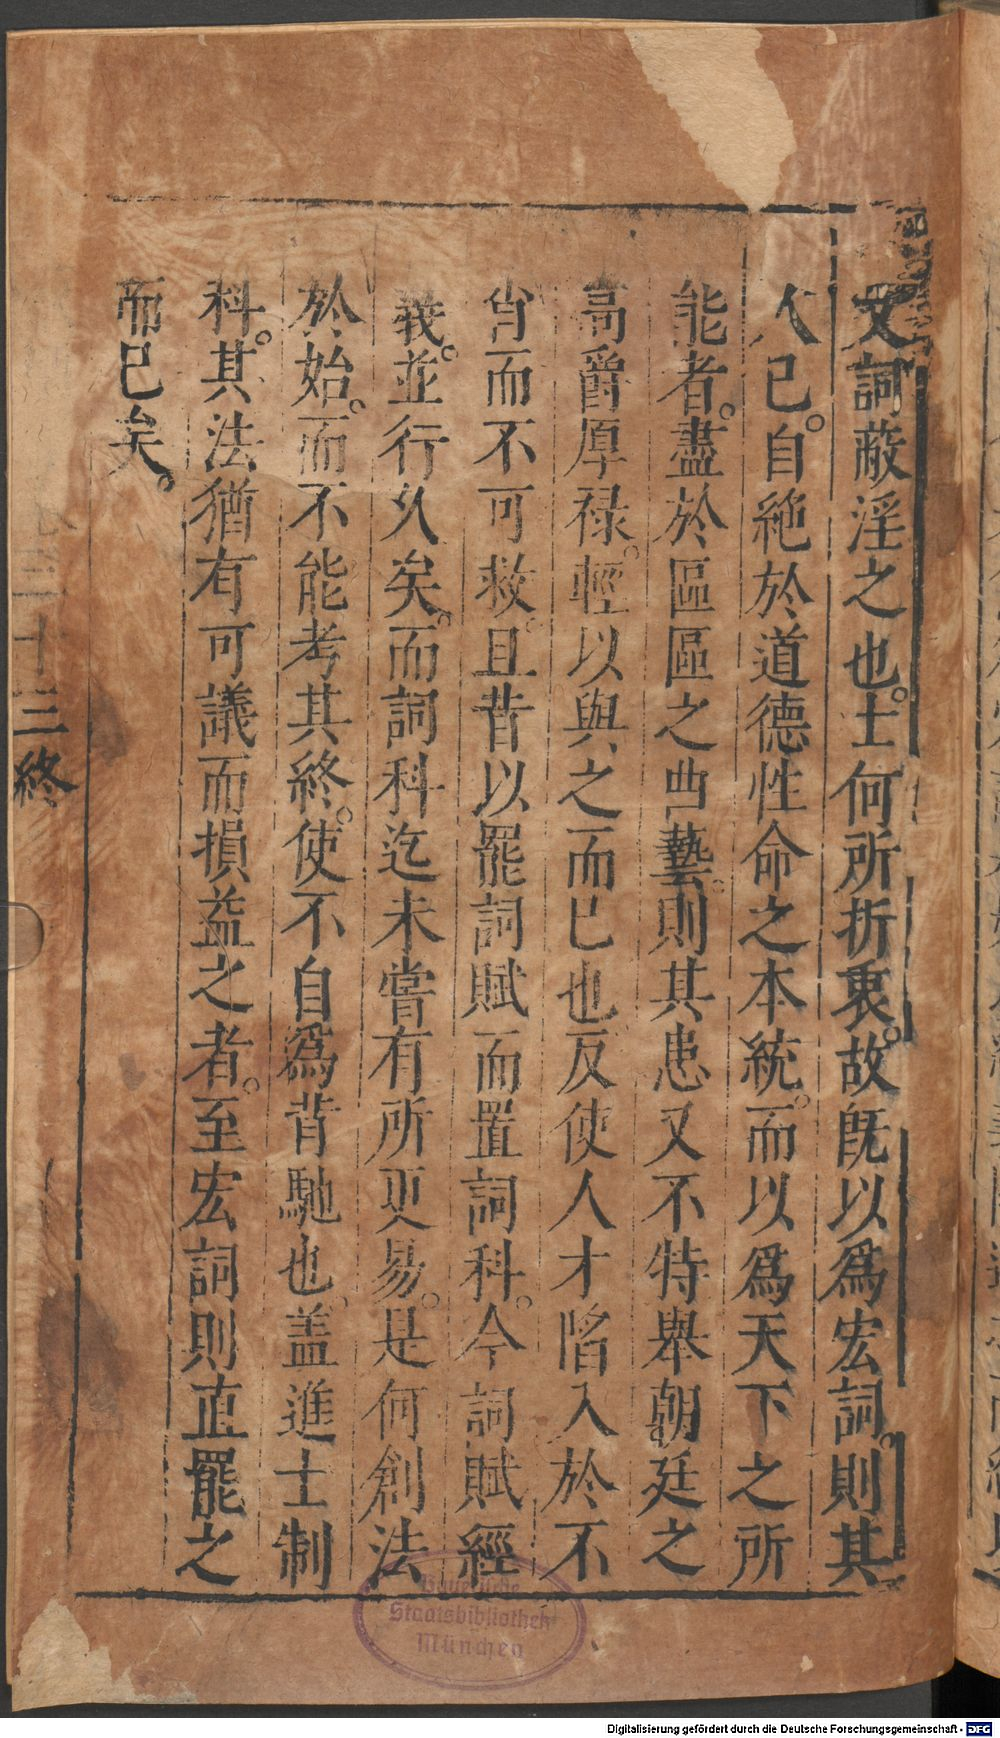 文詞蔽淫之也。士何所折衷。故旣以爲宏詞。則其
人已。自絶於道德性命之本統。而以爲天下之所
能者。盡於區區之曲藝。則其患又不特舉朝廷之
高爵厚禄。輕以與之而已也反使人才陷入於不
肖而不可救。且昔以罷詞賦而置詞科。今詞賦經
義。並行久矣。而詞科迄未嘗有所更易。是何創法
於始。而不能考其終。使不自爲背馳也。盖進士制
科。其法猶有可議而損益之者。至宏詞則直罷之
而已矣。
三十三終
Bayerische
Staatsbibliothek
München
Digitalisierung gefördert durch die Deutsche Forschungsgemeinschaft - DFG